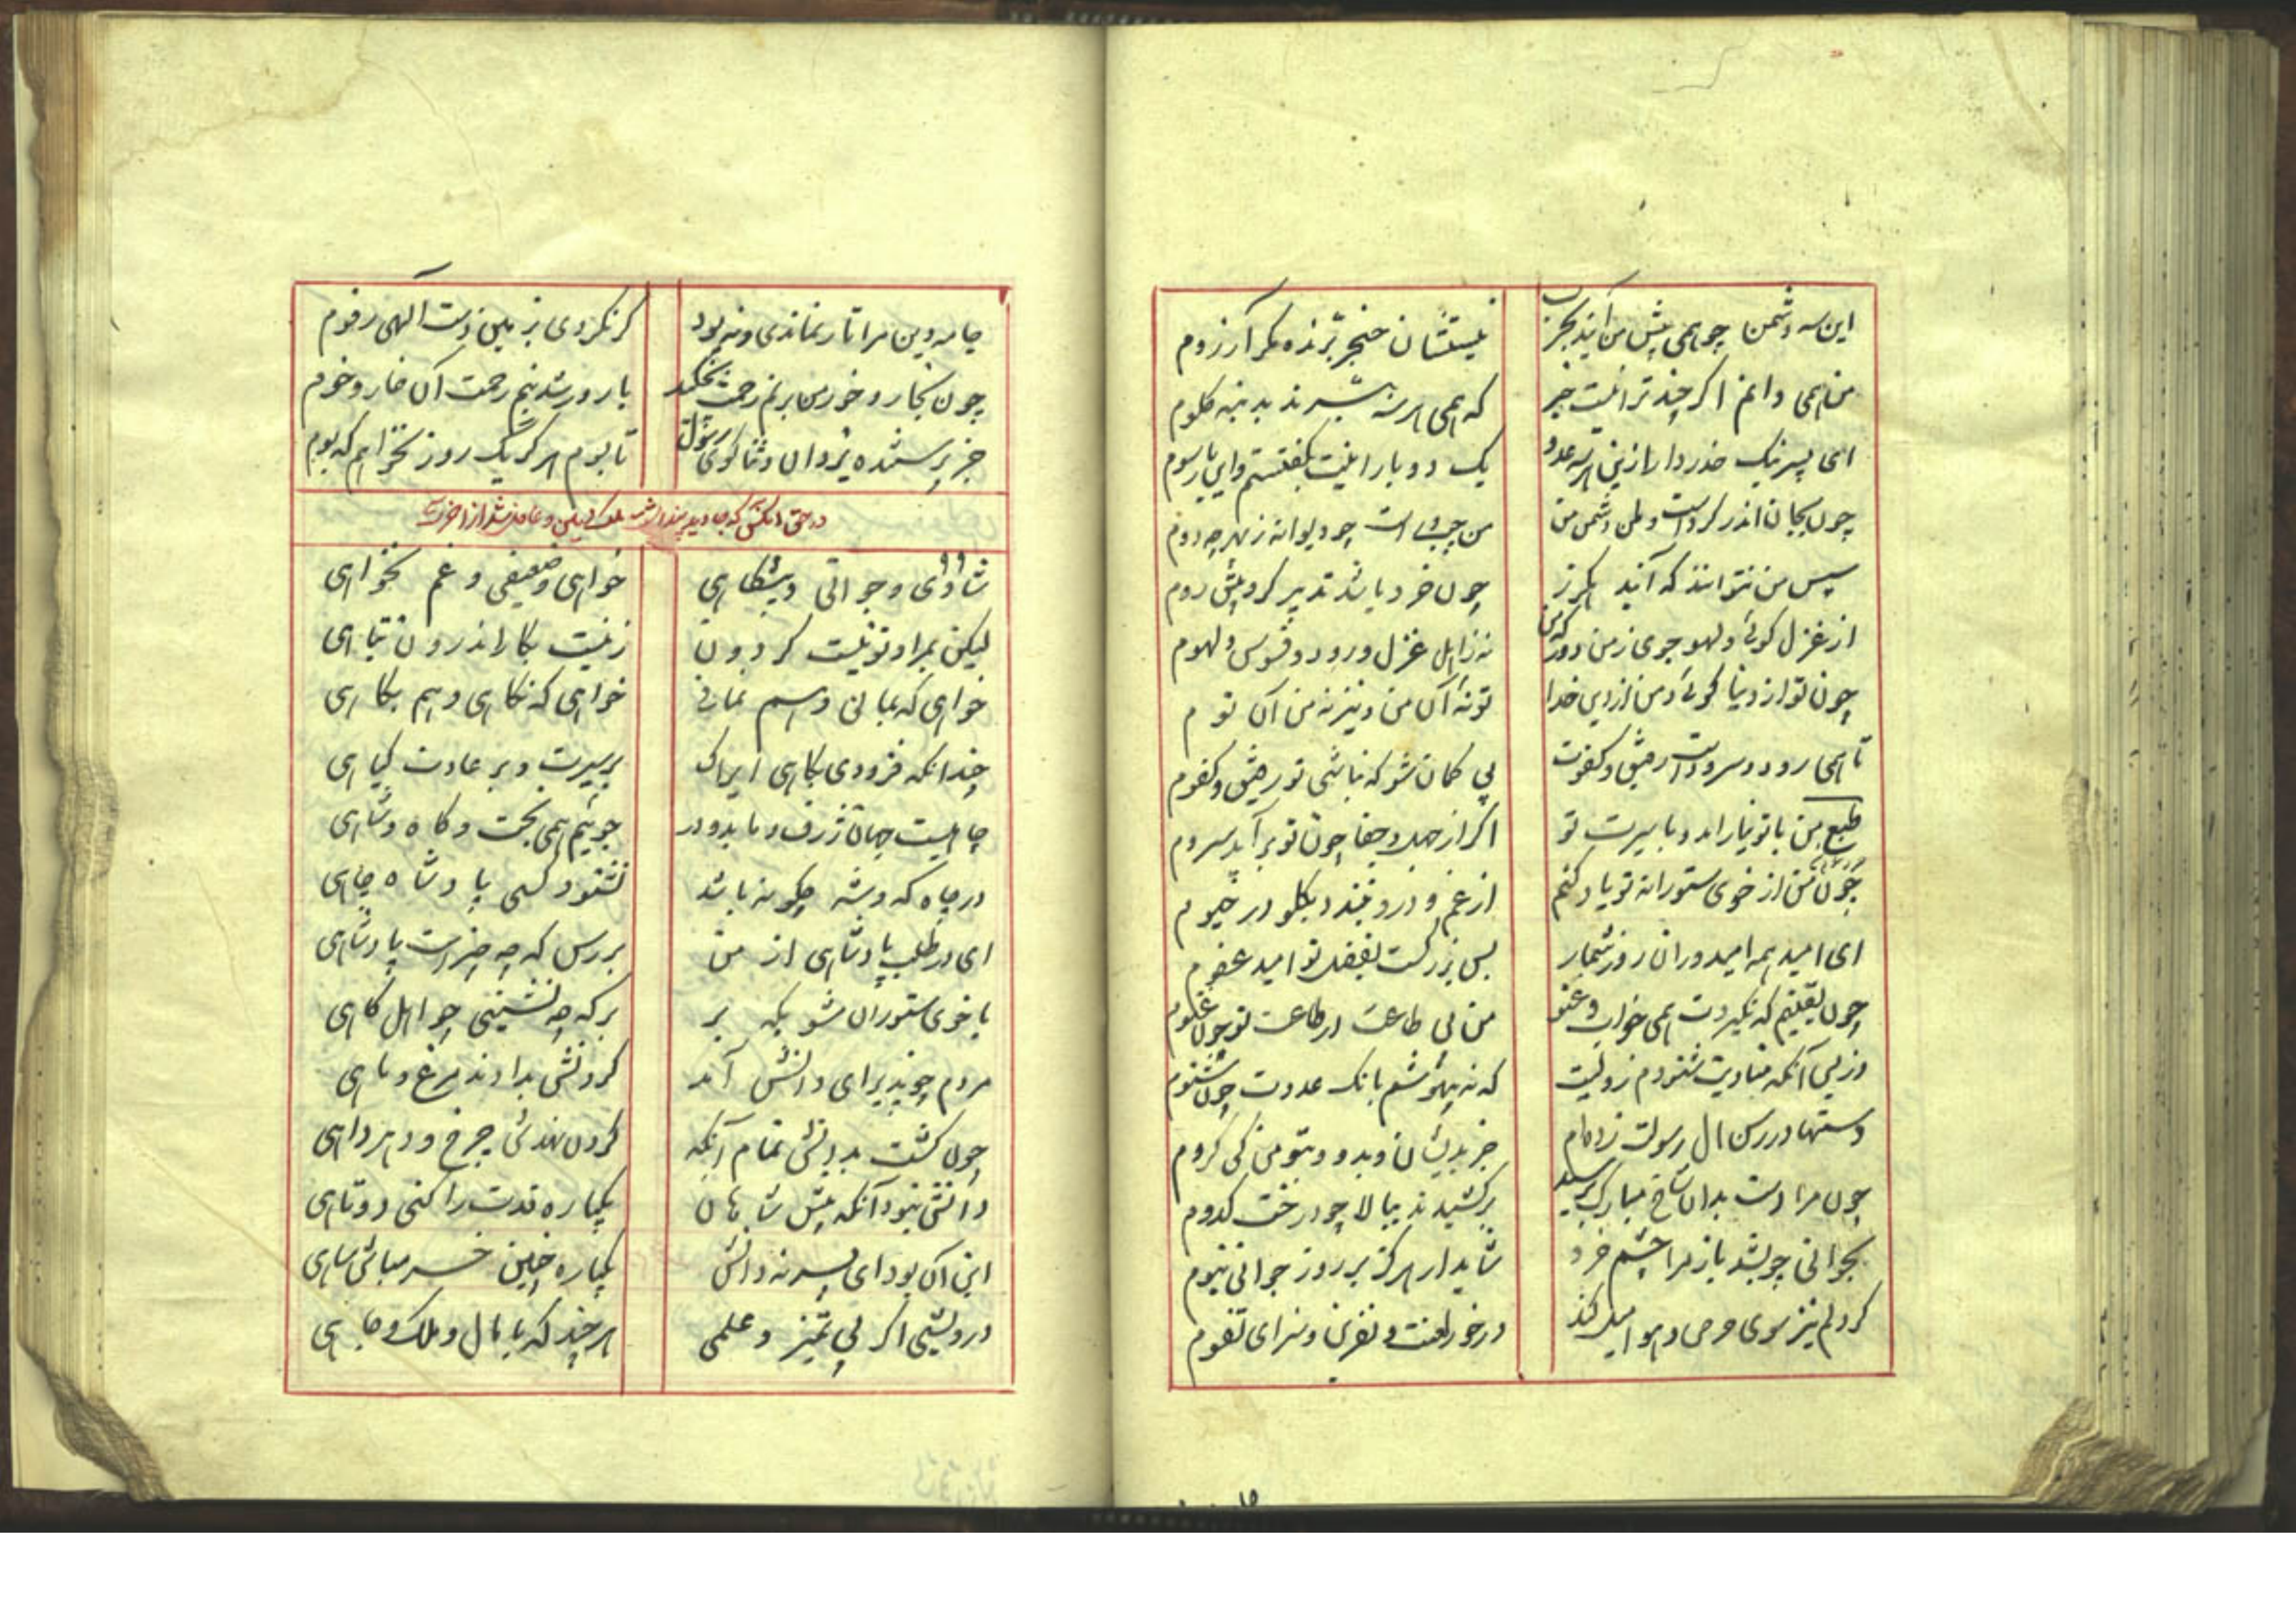 این سه دشمن چو همی پیش من آیند بحرب
نیستشان خنجر برنده مگر آرزوم
من همی دانم اگر چند ترا نیست خبر
که همی هر سه بتیرند بدینه گلوم
ای پسر نیک حذر دار ازین هر سه عدو
یک دو بار اینت بگفتستم و این بار سوم
چون بجان اندر کرده است وطن دشمن من
من چپ و راست چو دیوانه ز بهر چه دوم
سپس من نتوانند که آیند هگرز
چون خرد باشد تدبیر گر و پیش روم
از غزل گوئی و لهو جوی ز من دور که من
نه ز اهل غزل و رود و فسوس و لهوم
چون تو از دنیا گوئی و من از دین خدا
تو نه آن من و نیز نه من آن توم
تا همی رود و سرود است رفیق و کفوت
بی گمان شو که نباشی تو رفیق و کفوم
طبع من با تو نیارامد و با سیرت تو
اگر از جهل و جفا چون تو برآید سروم
چون من از خوی ستورانه تو یاد کنم
از غم و درد فتد در گلو خیوم
ای امید همه امیدواران روز شمار
بس بزرگست بفضل تو امید عفوم
چون یقینم که نگیردت همی خواب و غنو
من بی طاعت در طاعت تو چون غنوم
وز پی آنکه منادیت شنودم ز ولیت
که نه بیهوشم بانگ عدوت چون شنوم
دستها در رسن آل رسولت زده‌ام
جز بدیشان و بدو و بتو من کی گروم
چون مرا دست بدان شاخ مبارک برسید
برکشیدند ببالا چو درخت کدوم
بجوانی چو بشد باز مرا چشم خرد
شاید ار هرگز بر روز جوانی نیوم
گر دلم نیز سوی حرص و هوا میل کند
درخور لعنت و نفرین و سزای تفوم
جامه دین مرا تار نماندی و نه پود
گر نکردی بزمین دست الهی رفوم
چون بگارد و خور من بر نم رحمت نچکد
بارور شد بنم رحمت آن خار و خوم
جز پرستنده یزدان و ثناگوی رسول
تا بوم هرگز یک روز نخواهم که بوم
در حق آنکس که جاوید پنداشته ملک دنیی و غافل شد از آخرت
شادی و جوانی و پیشگاهی
خواهی و ضعیفی و غم نخواهی
لیکن بمراد تو نیست گردون
زینست بکار اندرون تباهی
خواهی که بمانی و هم نمانی
خواهی که نکاهی و هم بکاهی
چندانکه فزودی بکاهی ایراک
بر سیرت و بر عادت گیاهی
چاهیست جهان ژرف و ما بدو در
جوئیم همی تخت و گاه و شاهی
در چاه گه و شه چگونه باشد
نشنود کسی پادشاه چاهی
ای در طلب پادشاهی از من
بررس که چه چیز است پادشاهی
با خوی ستوران شو بکه بر
بر گه چه نشینی چو اهل گاهی
مردم چو پذیرای دانش آمد
گردنش بدادند مرغ و ماهی
چون گشت بدانش تمام آنگه
گردن نهدش چرخ و دهر داهی
دانش نبود آنکه پیش شاهان
یکباره قدت را کنی دوتاهی
این آن بود ای پسر نه دانش
یکباره چنین خر مباش ساهی
درویشی اگر بی تمیز و علمی
هر چند که با مال و ملک و جاهی